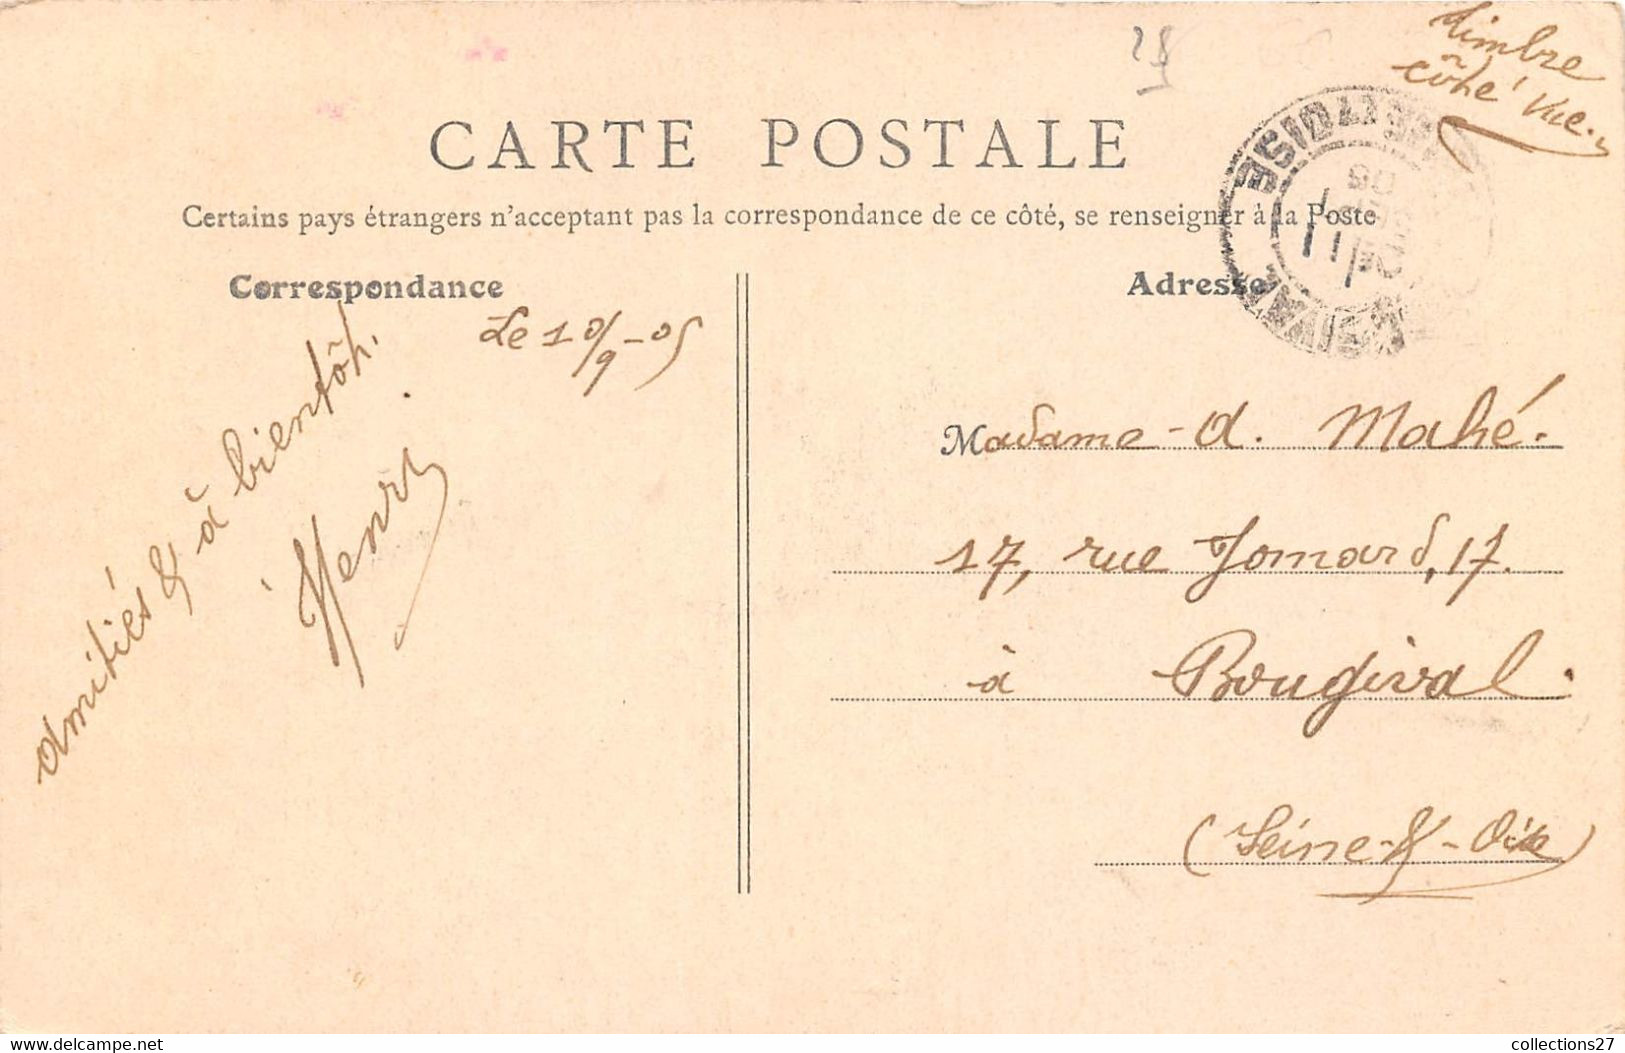 timbre
côté vue.
28
CARTE POSTALE
Certains pays étrangers n'acceptant pas la correspondance de ce côté, se renseigner à la Poste
Correspondance
Adresse
Le 10/9-05
amitiés & à bientôt.
Henri
Madame A. Mahé.
17, rue Jomard, 17.
à Bougival.
(Seine-&-Oise)
delcampe.net
collections27